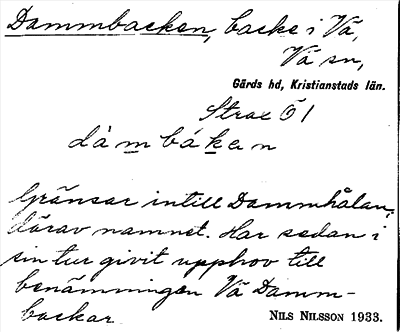 Dammbacken, backe i Vä,
Vä sn,
Gärds hd, Kristianstads län.
Strax Ö 1
dàmbákan
Gränsar intill Dammhålan,
därav namnet. Har sedan i
sin tur givit upphov till
benämningen Vä Damm-
backar.
NILS NILSSON 1933.